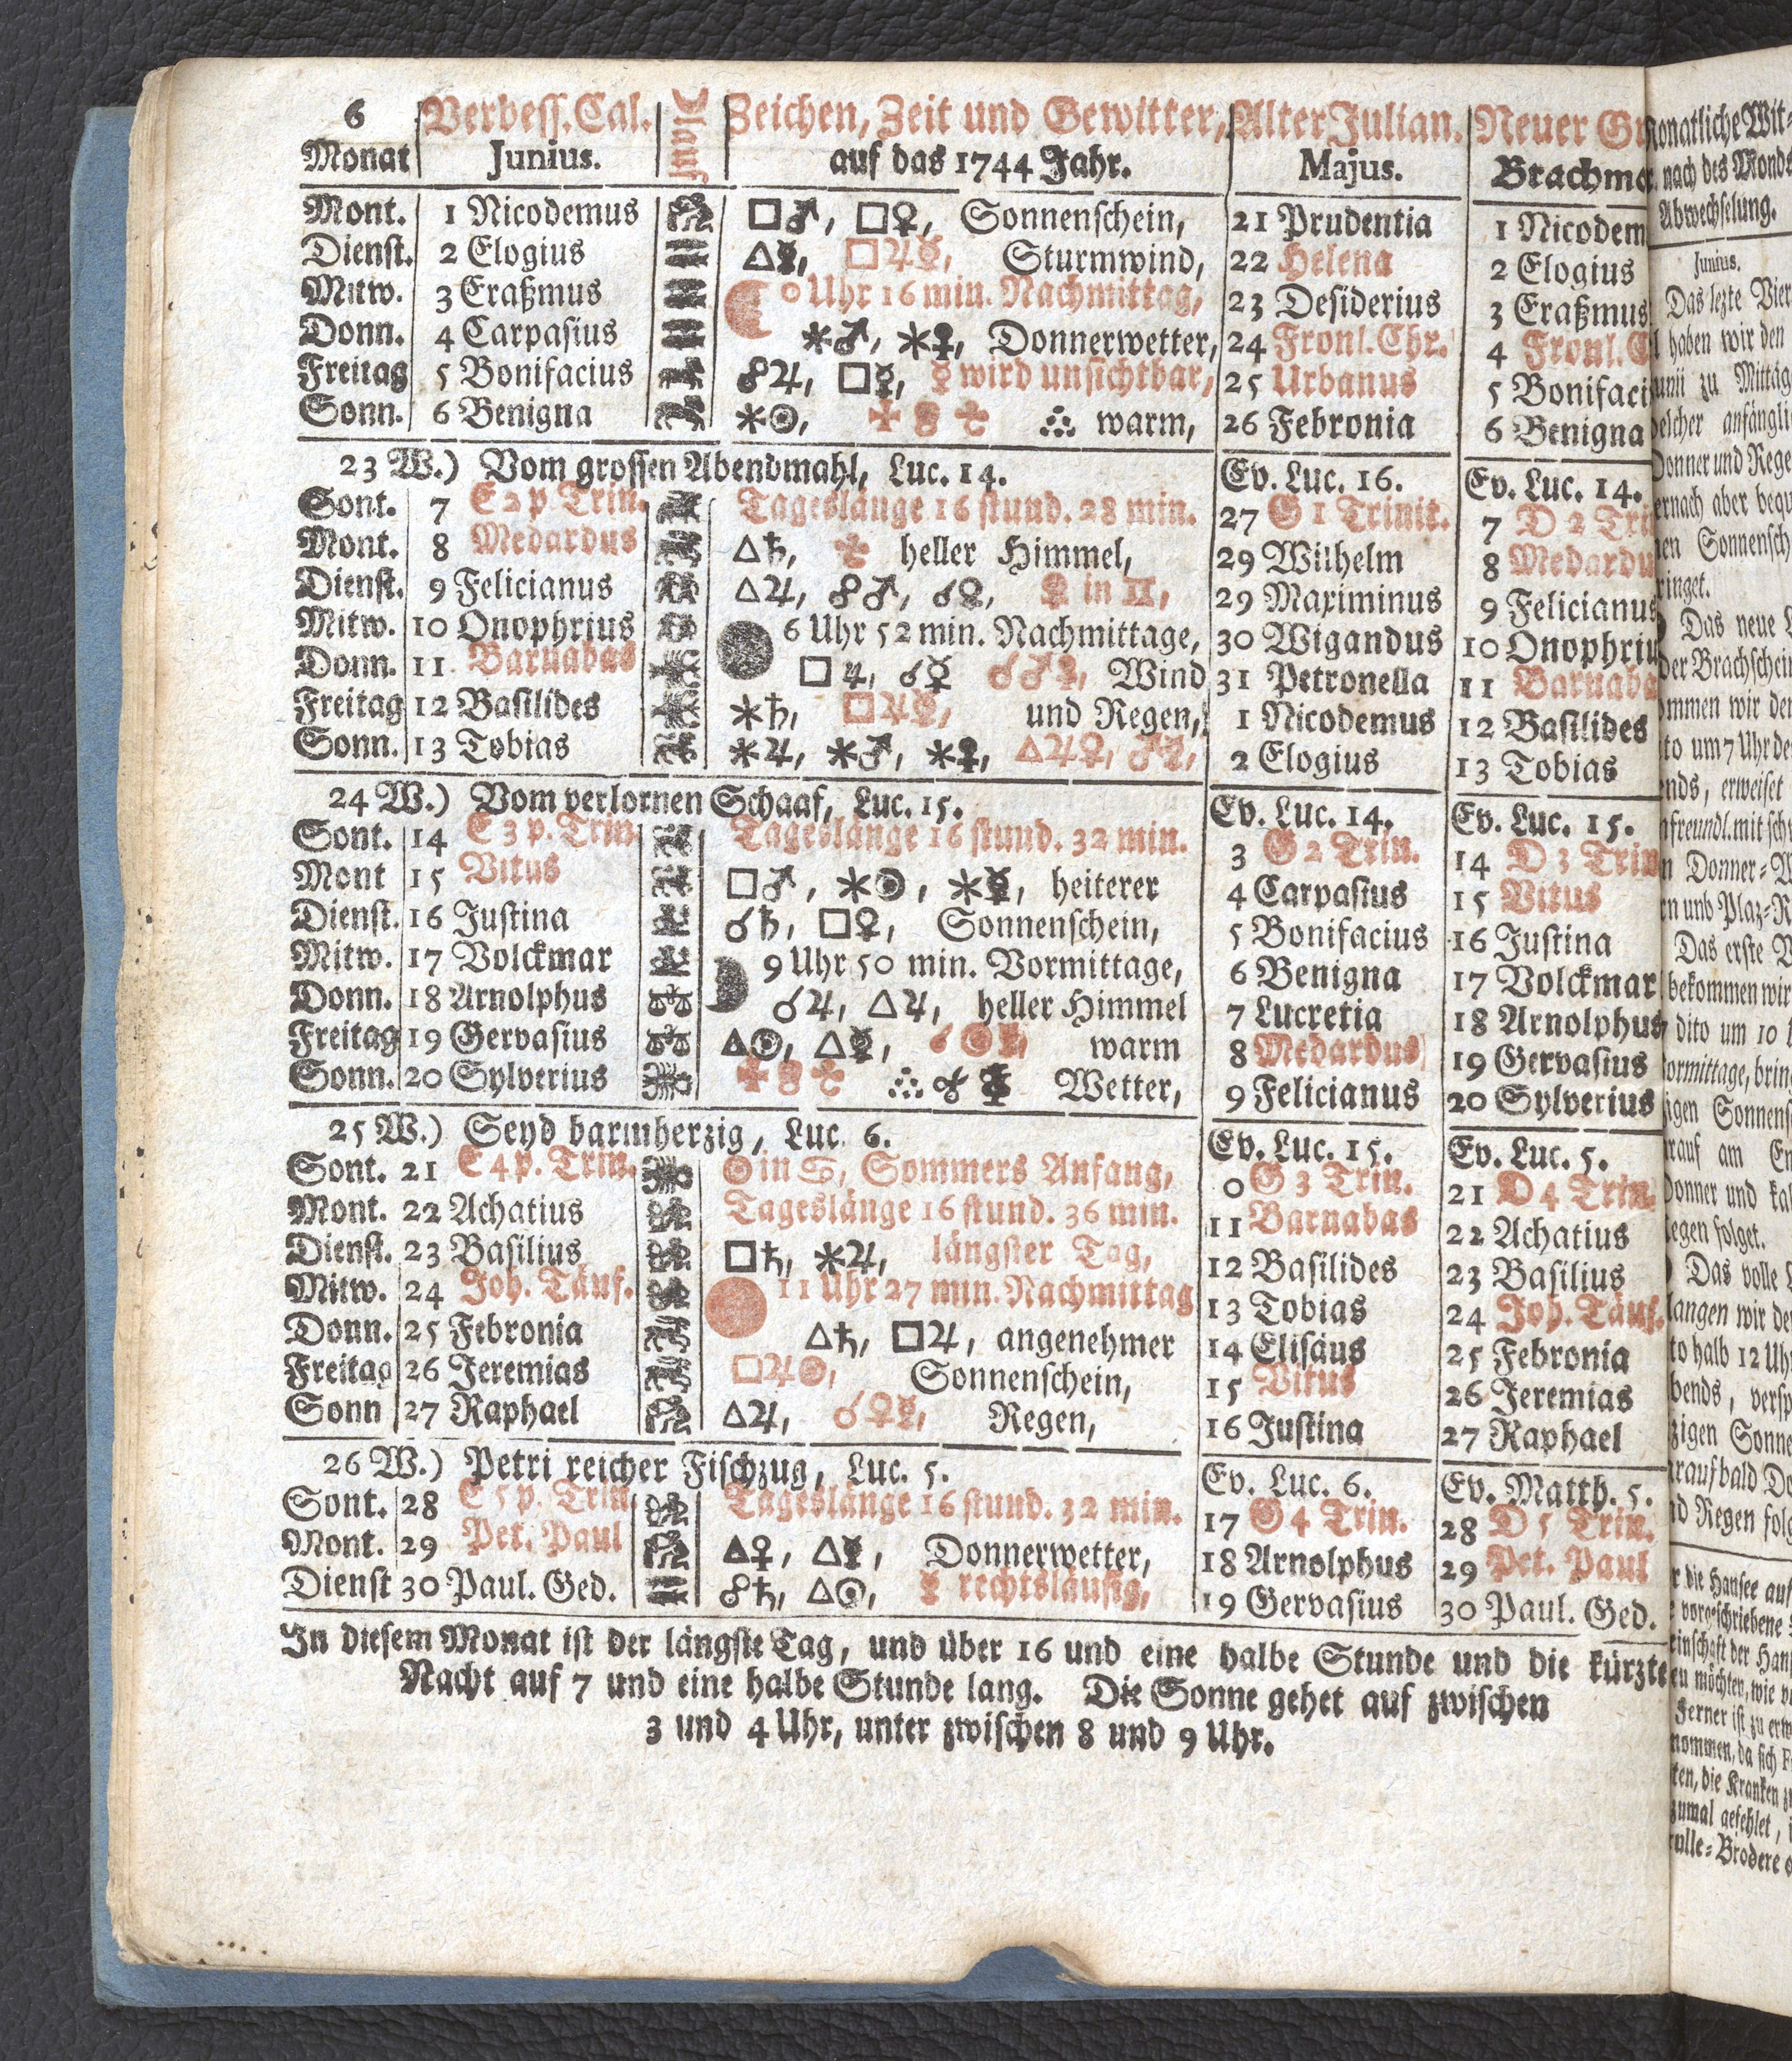 6 Verbess. Cal. ☾lauf Zeichen, Zeit und Gewitter, Alter Julian. Neuer
Monat Junius. auf das 1744 Jahr. Majus.
Mont. 1 Nicodemus □♂, □♀, Sonnenschein, 21 Prudentia 1 Nicodem
Dienst. 2 Elogius △☿, □♃☿, Sturmwind, 22 Helena 2 Elogius
Mitw. 3 Eraßmus 0 Uhr 16 min. Nachmittag, 23 Desiderius 3 Eraßmus
Donn. 4 Carpasius ✶♂, ✶♀, Donnerwetter, 24 Fronl. Chr. 4 Fronl.
Freitag 5 Bonifacius ☍♃, □☿, ☿ wird unsichtbar, 25 Urbanus 5 Bonifaci
Sonn. 6 Benigna ✶☉, warm, 26 Febronia 6 Benigna
23 W.) Vom grossen Abendmahl, Luc. 14. Ev. Luc. 16. Ev. Luc. 14.
Sont. 7 E 2 p Trin. Tageslänge 16 stund. 28 min. 27 G 1 Trinit. 7 D 2 Tri
Mont. 8 Medardus △♄, heller Himmel, 29 Wilhelm 8 Medardu
Dienst. 9 Felicianus △♃, ☍♂, ☌♀, ♀ in ♊, 29 Maximinus 9 Felicianus
Mitw. 10 Onophrius 6 Uhr 52 min. Nachmittage, 30 Wigandus 10 Onophriu
Donn. 11 Barnabas □♃, ☌☿ ☌♂☿, Wind 31 Petronella 11 Barnaba
Freitag 12 Basilides ✶♄, □♃☿, und Regen, 1 Nicodemus 12 Basilides
Sonn. 13 Tobias ✶♃, ✶♂, ✶♀, △♃♀, ♂☿, 2 Elogius 13 Tobias
24 W.) Vom verlornen Schaaf, Luc. 15. Ev. Luc. 14. Ev. Luc. 15.
Sont. 14 E 3 p. Trin. Tageslänge 16 stund. 32 min. 3 G 2 Trin. 14 D 3 Trin
Mont 15 Vitus □♂, ✶☉, ✶☿, heiterer 4 Carpasius 15 Vitus
Dienst. 16 Justina ☌♄, □♀, Sonnenschein, 5 Bonifacius 16 Justina
Mitw. 17 Volckmar 9 Uhr 50 min. Vormittage, 6 Benigna 17 Volckmar
Donn. 18 Arnolphus ☌♃, △♃, heller Himmel 7 Lucretia 18 Arnolphus
Freitag 19 Gervasius △☉, △☿, ☌☉☿, warm 8 Medardus 19 Gervasius
Sonn. 20 Sylverius Wetter, 9 Felicianus 20 Sylverius
25 W.) Seyd barmherzig, Luc. 6. Ev. Luc. 15. Ev. Luc. 5.
Sont. 21 E 4 p. Trin. ☉ in ♋, Sommers Anfang, 0 G 3 Trin. 21 D 4 Trin.
Mont. 22 Achatius Tageslänge 16 stund. 36 min. 11 Barnabas 22 Achatius
Dienst. 23 Basilius □♄, ✶♃, längster Tag, 12 Basilides 23 Basilius
Mitw. 24 Joh. Täuf. 11 Uhr 27 min. Nachmittag 13 Tobias 24 Joh. Täuf.
Donn. 25 Febronia △♄, □♃, angenehmer 14 Elisäus 25 Febronia
Freitag 26 Jeremias □♃☉, Sonnenschein, 15 Vitus 26 Jeremias
Sonn 27 Raphael △♃, ☌♀☿, Regen, 16 Justina 27 Raphael
26 W.) Petri reicher Fischzug, Luc. 5. Ev. Luc. 6. Ev. Matth. 5.
Sont. 28 E 5 p. Trin. Tageslänge 16 stund. 32 min. 17 G 4 Trin. 28 D 5 Trin.
Mont. 29 Pet. Paul △♀, △☿, Donnerwetter, 18 Arnolphus 29 Pet. Paul
Dienst 30 Paul. Ged. ☍♄, △☉, ☿ rechtsläufig, 19 Gervasius 30 Paul. Ged.
In diesem Monat ist der längste Tag, und über 16 und eine halbe Stunde und die kürzte
Nacht auf 7 und eine halbe Stunde lang. Die Sonne gehet auf zwischen
3 und 4 Uhr, unter zwischen 8 und 9 Uhr.
nach des Monds
Abwechselung.
Junius.
Das lezte Vier
haben wir den
zu Mittag
anfängli
Donner und Rege
aber
Sonnensch
Das neue
der Brachschein
wir der
um 7 Uhr de
erweiset
mit
Donner=
und Plaz=R
Das erste V
bekommen wir
dito um 10
bring
Sonnens
auf am En
Donner und kal
Regen folget.
Das volle
langen wir de
to halb 12 Uh
Sonne
bald Do
Regen folg
die Hansee auf
vorgeschriebene
der Han
möchten, wie
Ferner ist zu
da sich
die Kranken
zumal gefehlet,
Brodere